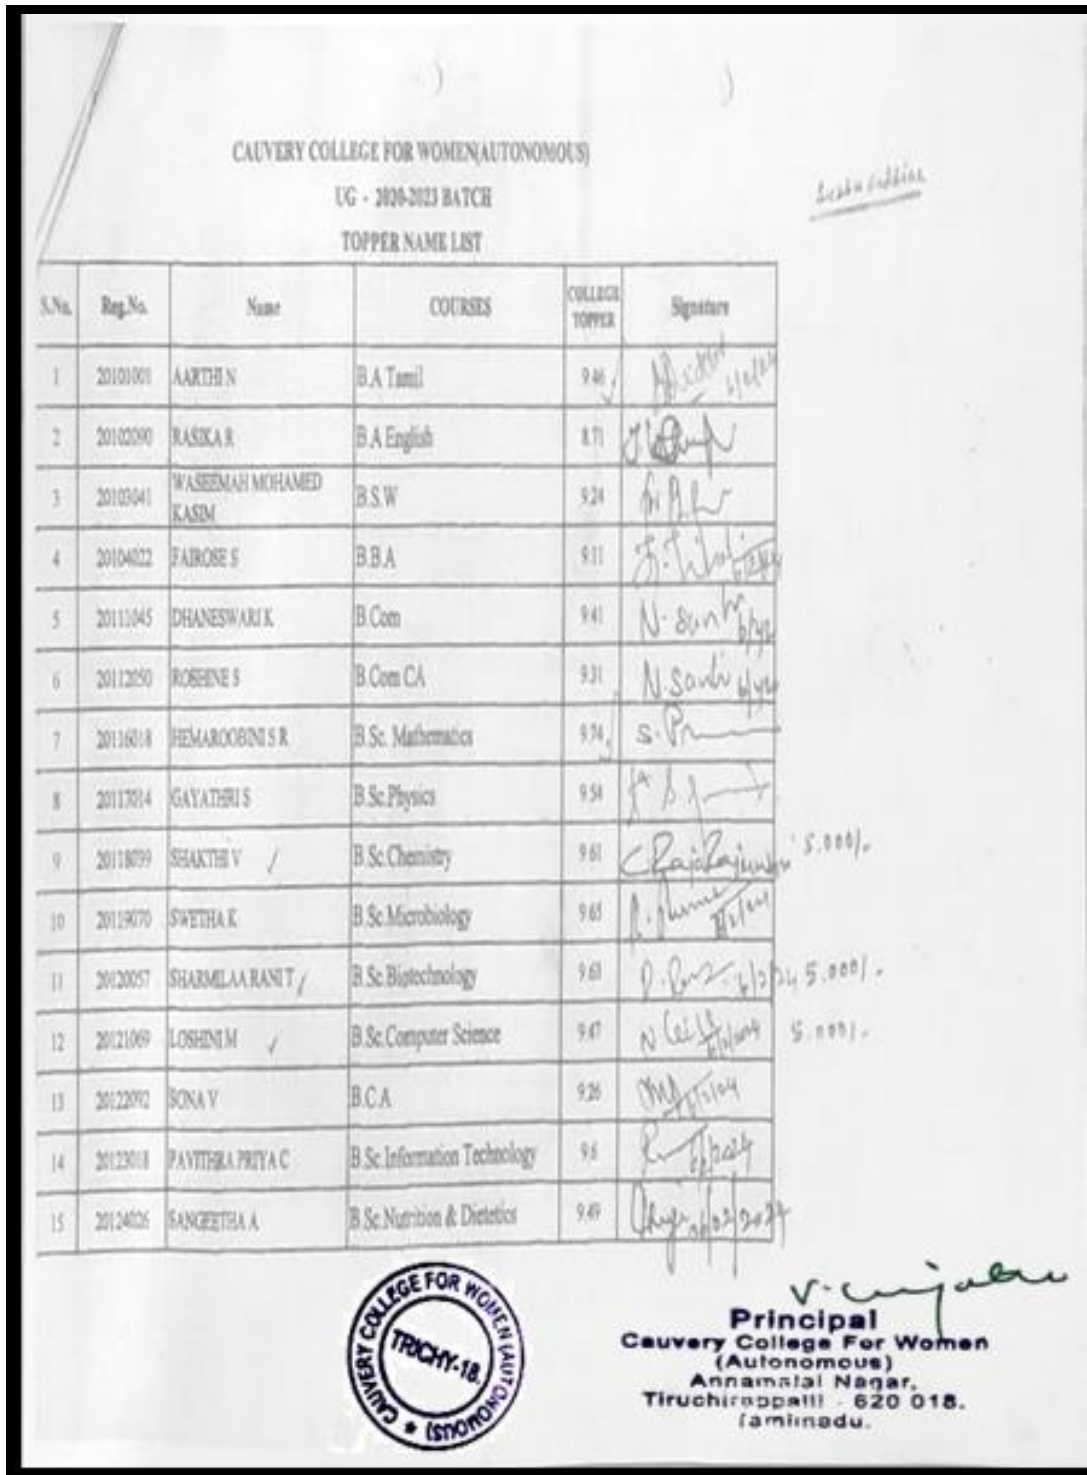 CAUVERY COLLEGE FOR WOMEN(AUTONOMOUS)
UG - 2020-2023 BATCH
TOPPER NAME LIST
S.No. Reg.No. Name COURSES COLLEGE TOPPER Signature
1 20101001 AARTHI N B.A Tamil 9.46
2 20102090 RASIKA R B.A English 8.71
3 20103041 WASEEMAH MOHAMED KASIM B.S.W 9.24
4 20104022 FAIROSE S B.B.A 9.11
5 20111045 DHANESWARI K B.Com 9.41
6 20112050 ROSHINE S B.Com CA 9.31 N. Santhi
7 20116018 HEMAROOBINI S R B.Sc. Mathematics 9.74
8 20117014 GAYATHRI S B.Sc.Physics 9.54
9 20118099 SHAKTHI V B.Sc.Chemistry 9.61 5.000/-
10 20119070 SWETHA K B.Sc.Microbiology 9.65
11 20120057 SHARMILAA RANI T B.Sc.Biotechnology 9.63 6/2/24 5.000/-
12 20121069 LOSHINI M B.Sc.Computer Science 9.47 5.000/-
13 20122092 SONA V B.C.A 9.26
14 20123018 PAVITHRA PRIYA C B.Sc.Information Technology 9.6
15 20124026 SANGEETHA A B.Sc.Nutrition & Dietetics 9.49 06/02/2024
CAUVERY COLLEGE FOR WOMEN (AUTONOMOUS)
TRICHY-18.
Principal
Cauvery College For Women
(Autonomous)
Annamalai Nagar,
Tiruchirappalli - 620 018.
Tamilnadu.